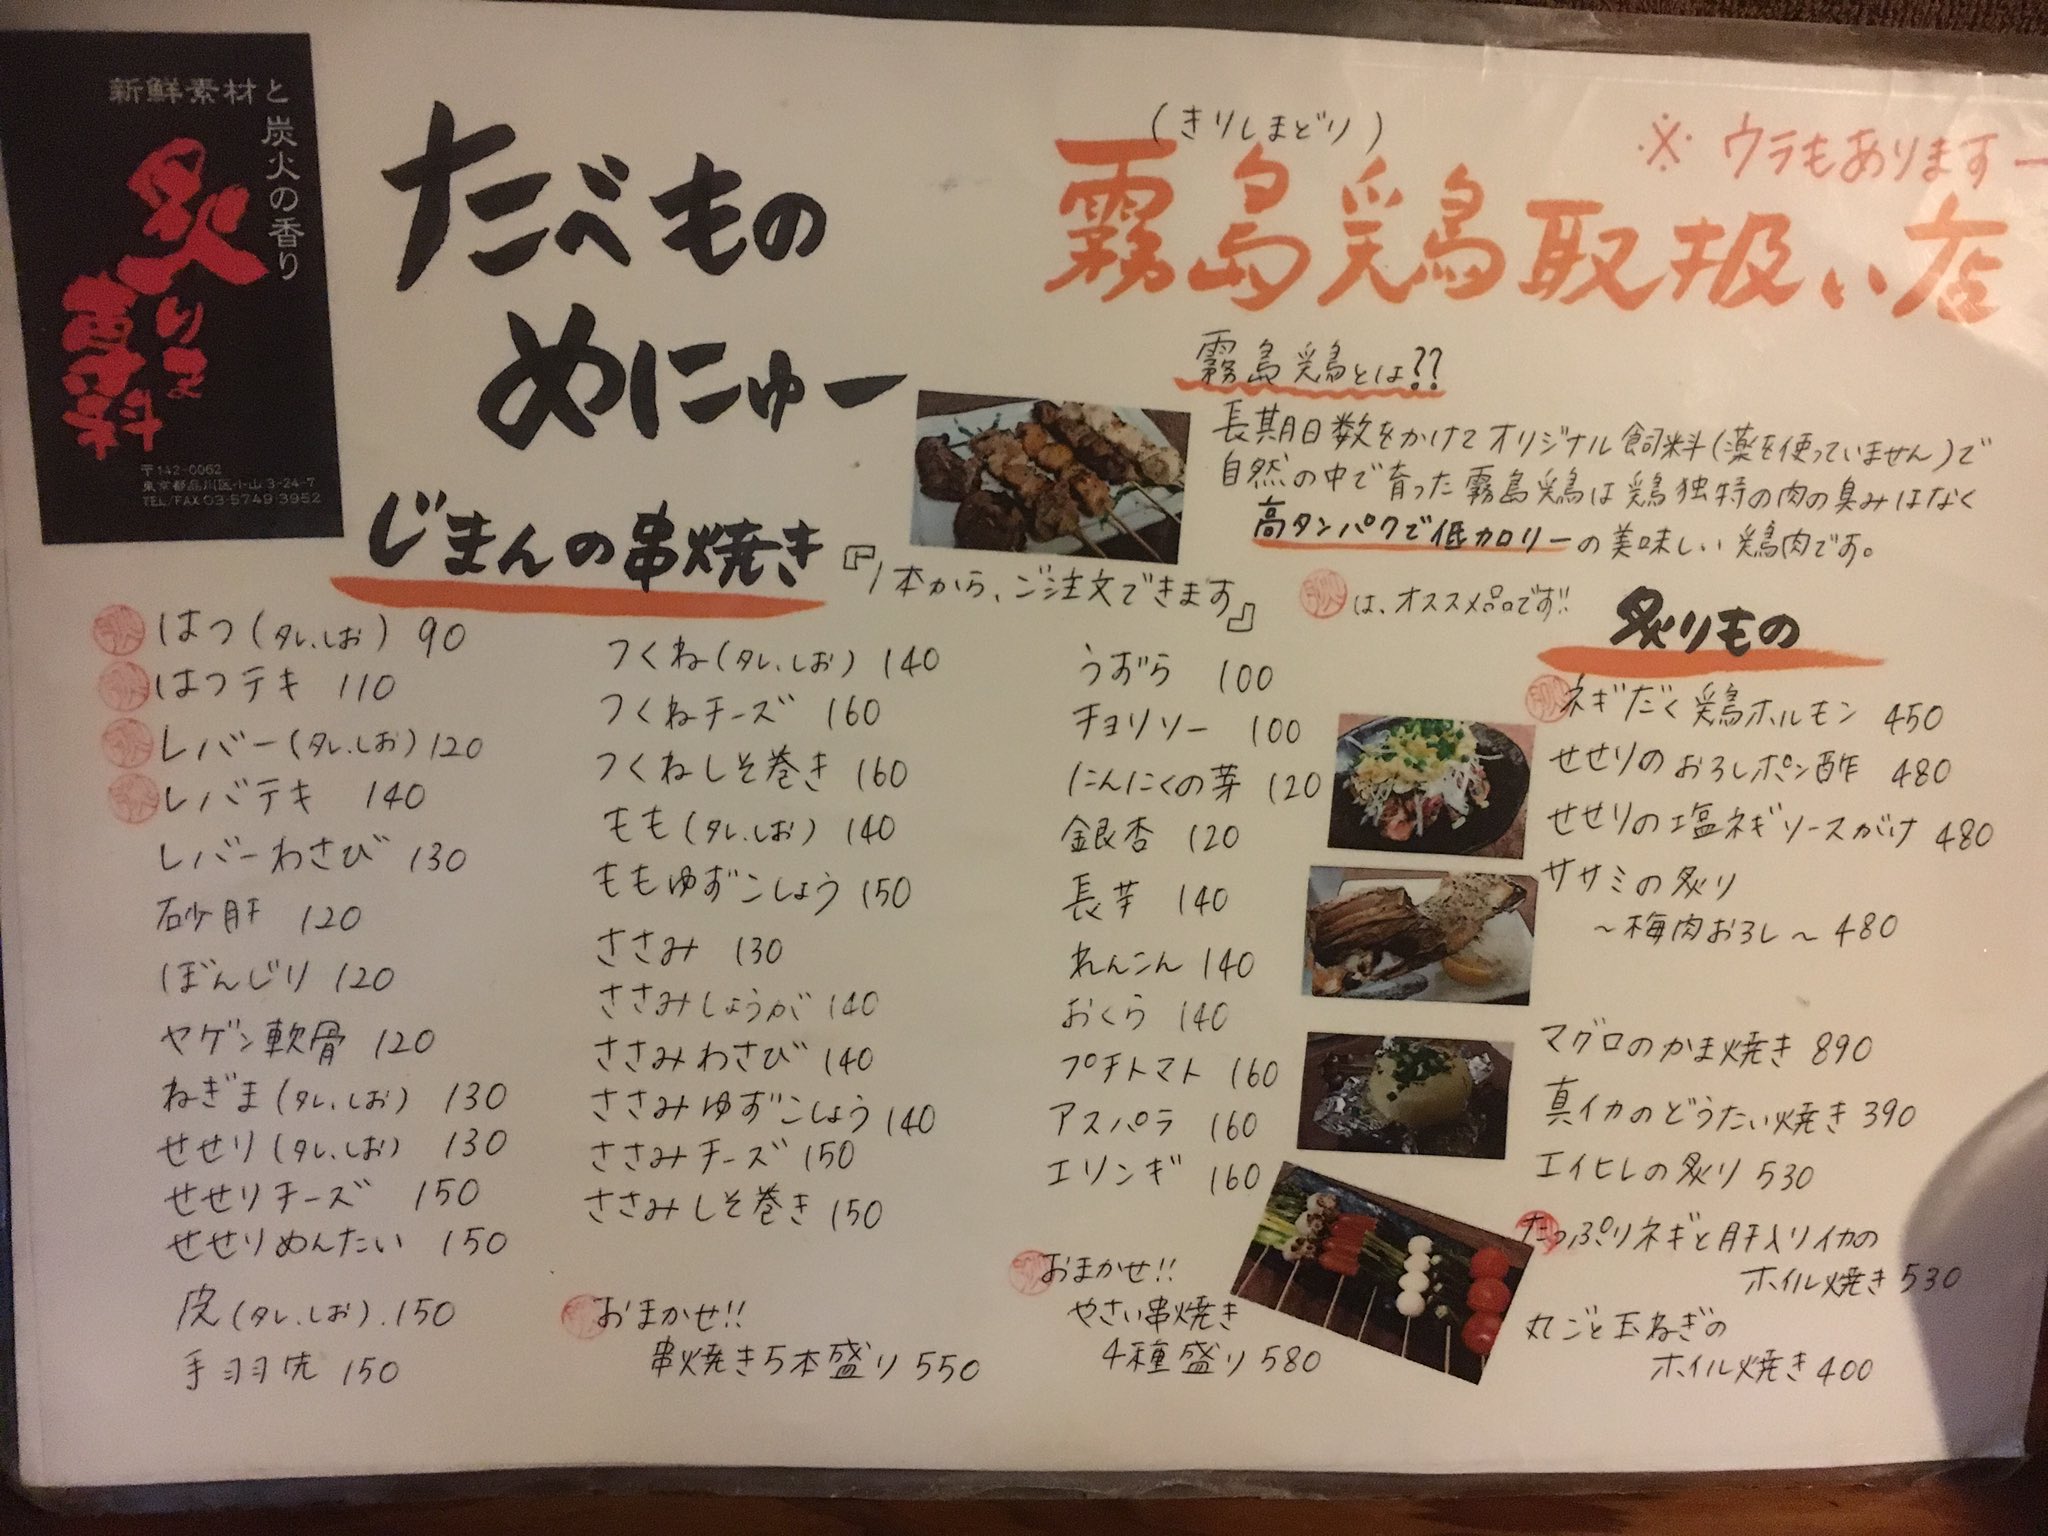 新鮮素材と
炭火の香り
炙りま専科
〒142-0062
東京都品川区小山3-24-7
TEL/FAX 03-5749-3952
たべもの
めにゅー
(きりしまどり)
霧島鶏取扱い店
※ウラもあります
霧島鶏とは??
長期日数をかけてオリジナル飼料(薬を使っていません)で
自然の中で育った霧島鶏は鶏独特の肉の臭みはなく
高タンパクで低カロリーの美味しい鶏肉です。
じまんの串焼き
『1本から、ご注文できます』
は、オススメ品です!!
はつ(タレ、しお) 90
はつテキ 110
レバー(タレ、しお) 120
レバテキ 140
レバーわさび 130
砂肝 120
ぼんじり 120
ヤゲン軟骨 120
ねぎま(タレ、しお) 130
せせり(タレ、しお) 130
せせりチーズ 150
せせりめんたい 150
皮(タレ、しお). 150
手羽先 150
つくね(タレ、しお) 140
つくねチーズ 160
つくねしそ巻き 160
もも(タレ、しお) 140
ももゆずこしょう 150
ささみ 130
ささみしょうが 140
ささみわさび 140
ささみゆずこしょう 140
ささみチーズ 150
ささみしそ巻き 150
おまかせ!!
串焼き5本盛り 550
うずら 100
チョリソー 100
にんにくの芽 120
銀杏 120
長芋 140
れんこん 140
おくら 140
プチトマト 160
アスパラ 160
エリンギ 160
おまかせ!!
やさい串焼き
4種盛り 580
炙りもの
ネギだく鶏ホルモン 450
せせりのおろしポン酢 480
せせりの塩ネギソースがけ 480
ササミの炙り
～梅肉おろし～ 480
マグロのかま焼き 890
真イカのどうたい焼き 390
エイヒレの炙り 530
たっぷりネギと肝入りイカの
ホイル焼き 530
丸ごと玉ねぎの
ホイル焼き 400